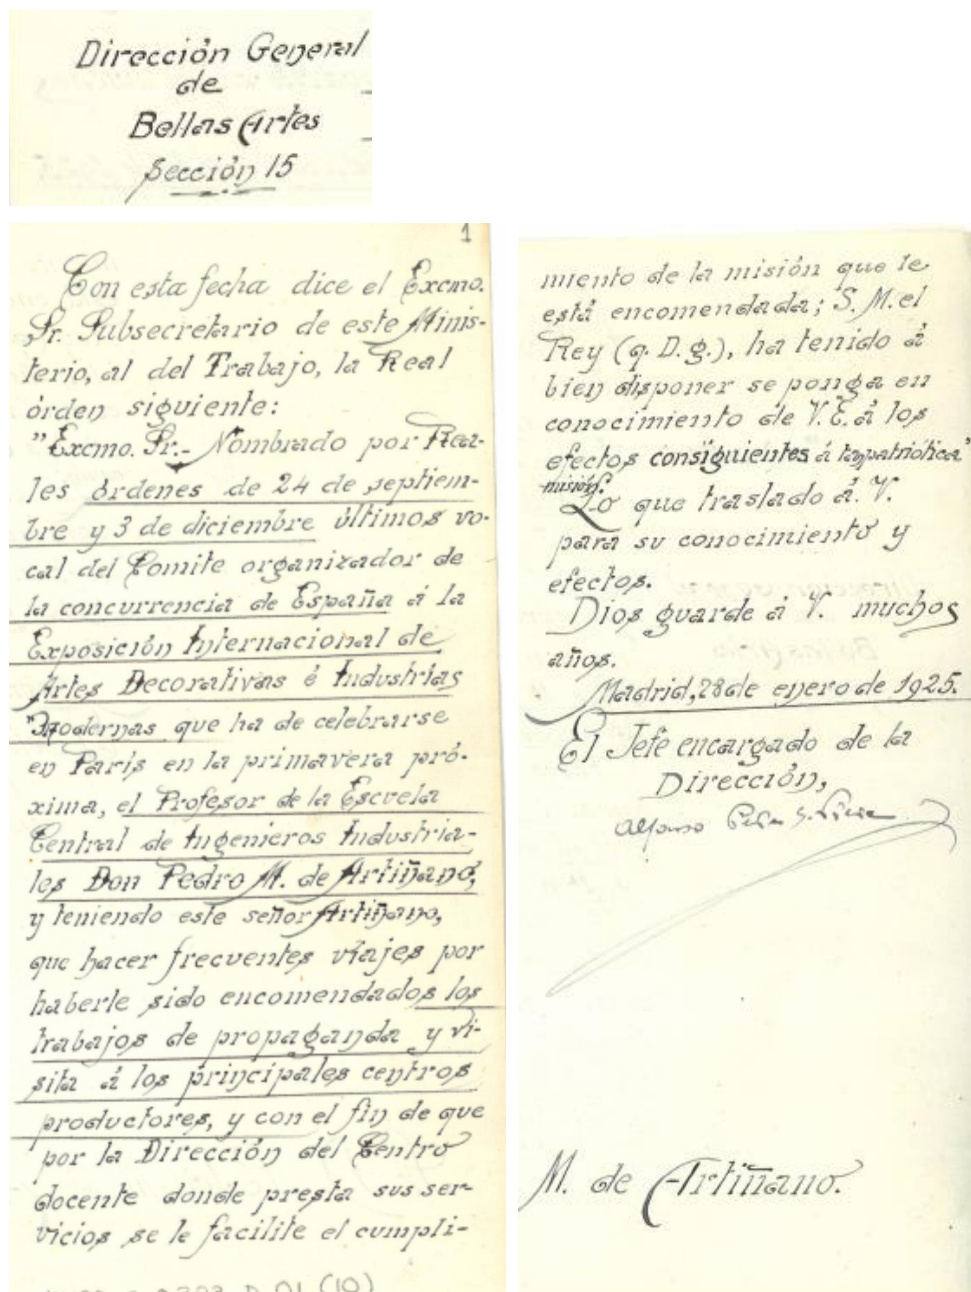 Dirección General
de
Bellas Artes
Sección 15
1
Con esta fecha dice el Excmo.
Sr. Subsecretario de este Minis-
terio, al del Trabajo, la Real
órden siguiente:
"Excmo. Sr.- Nombrado por Rea-
les órdenes de 24 de septiem-
bre y 3 de diciembre últimos vo-
cal del Comite organizador de
la concurrencia de España á la
Exposición Internacional de
Artes Decorativas é Industrias
Modernas que ha de celebrarse
en París en la primavera pró-
xima, el Profesor de la Escuela
Central de Ingenieros Industria-
les Don Pedro M. de Artiñano,
y teniendo este señor Artiñano,
que hacer frecuentes viajes por
haberle sido encomendados los
trabajos de propaganda y vi-
sita á los principales centros
productores, y con el fin de que
por la Dirección del Centro
docente donde presta sus ser-
vicios se le facilite el cumpli-
D 01 (10)
miento de la misión que le
está encomendada; S. M. el
Rey (q. D. g.), ha tenido á
bien disponer se ponga en
conocimiento de V. E. á los
efectos consiguientes á tan patriótica"
misión.
Lo que traslado á V.
para su conocimiento y
efectos.
Dios guarde á V. muchos
años.
Madrid, 28 de enero de 1925.
El Jefe encargado de la
Dirección,
Alfonso
M. de Artiñano.